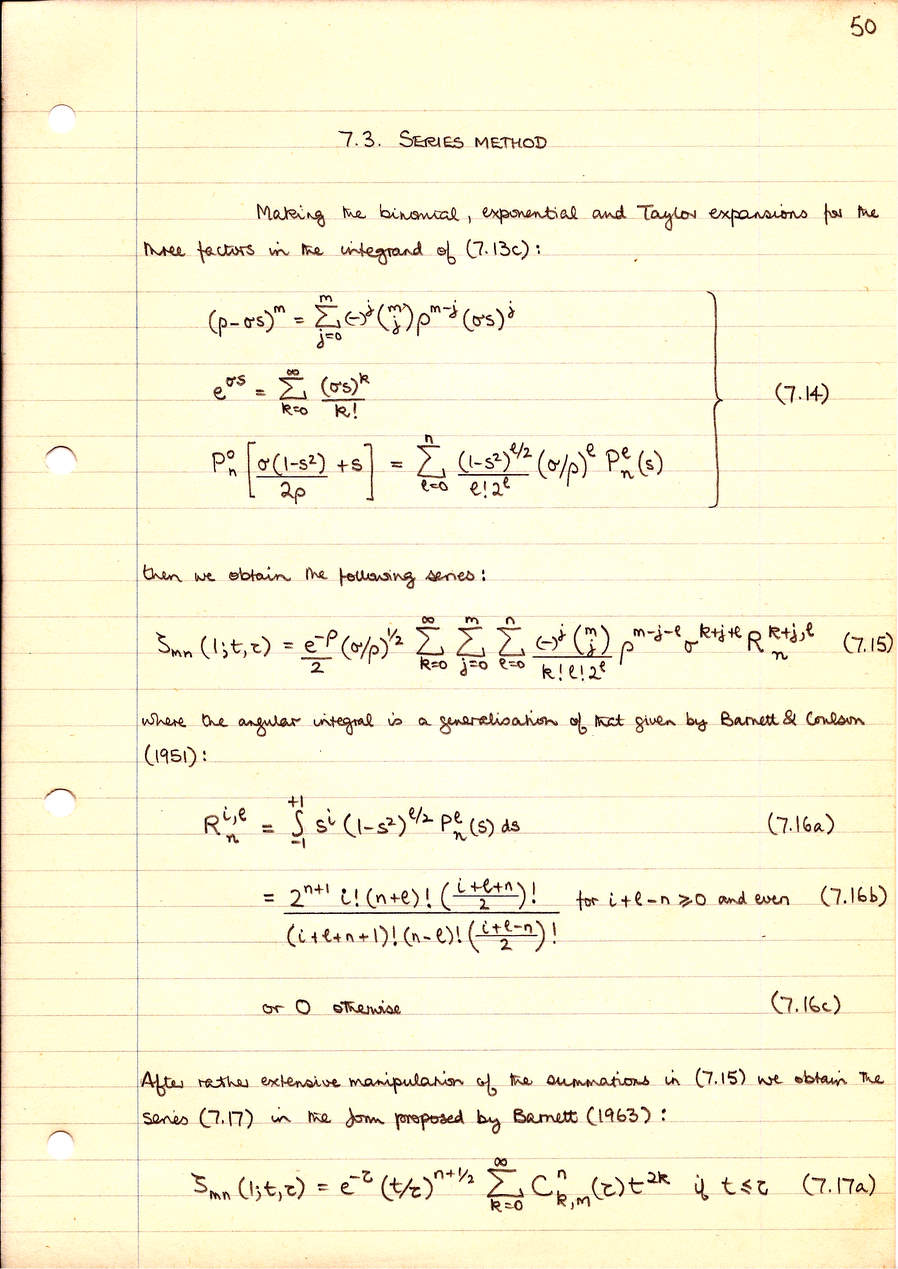 50
7.3. SERIES METHOD
Making the binomial, exponential and Taylor expansions for the
three factors in the integrand of (7.13c):
(ρ-σs)^m = ∑_{j=0}^{m} (-)^j (m j) ρ^{m-j} (σs)^j
e^{σs} = ∑_{k=0}^{∞} (σs)^k / k! (7.14)
P_n^0 [σ(1-s²)/2ρ + s] = ∑_{ℓ=0}^{n} (1-s²)^{ℓ/2} / ℓ!2^ℓ (σ/ρ)^ℓ P_n^ℓ(s)
then we obtain the following series:
ζ_{mn}(1;t,τ) = e^{-ρ}/2 (σ/ρ)^{1/2} ∑_{k=0}^{∞} ∑_{j=0}^{m} ∑_{ℓ=0}^{n} (-)^j (m j) / k!ℓ!2^ℓ ρ^{m-j-ℓ} σ^{k+j+ℓ} R_n^{k+j,ℓ} (7.15)
where the angular integral is a generalisation of that given by Barnett & Coulson
(1951):
R_n^{i,ℓ} = ∫_{-1}^{+1} s^i (1-s²)^{ℓ/2} P_n^ℓ(s) ds (7.16a)
= 2^{n+1} i! (n+ℓ)! ((i+ℓ+n)/2)! / (i+ℓ+n+1)! (n-ℓ)! ((i+ℓ-n)/2)! for i+ℓ-n ⩾ 0 and even (7.16b)
or 0 otherwise (7.16c)
After rather extensive manipulation of the summations in (7.15) we obtain the
series (7.17) in the form proposed by Barnett (1963):
ζ_{mn}(1;t,τ) = e^{-τ} (t/τ)^{n+1/2} ∑_{k=0}^{∞} C_{k,m}^n(τ) t^{2k} if t ⩽ τ (7.17a)